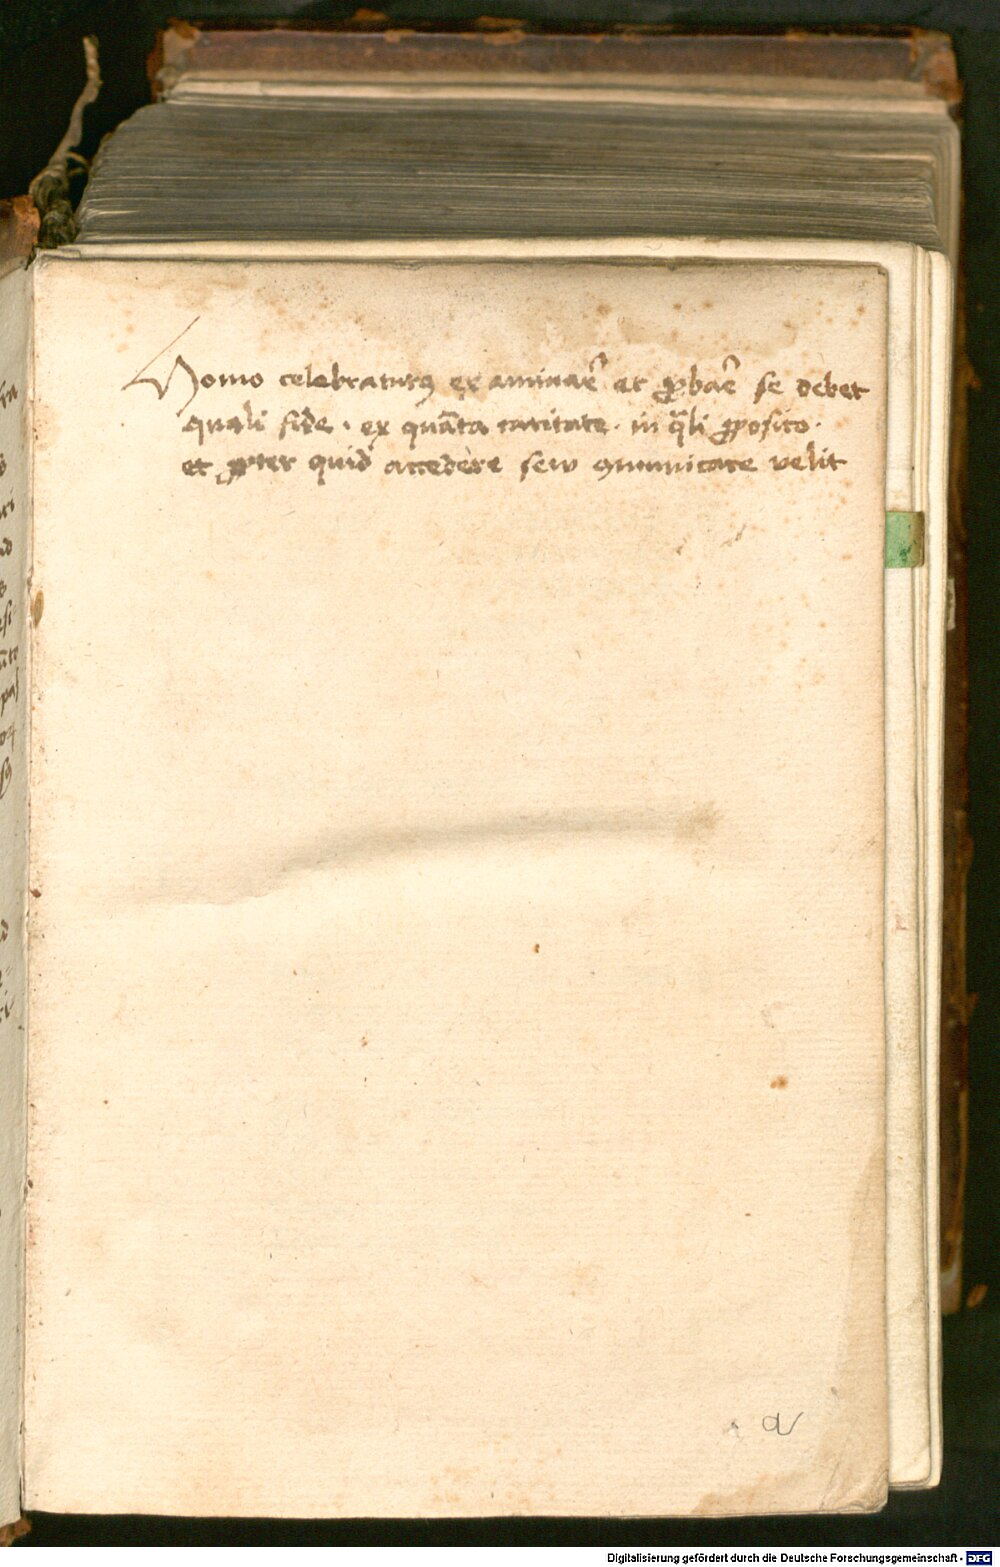 Homo celebraturꝰ examinar̄ et ꝓbar̄ se debet
quali fide · ex quāta caritate · in q̄li ꝓposito ·
et ꝓpter quid accedere sew ꝯmunicare velit
a
Digitalisierung gefördert durch die Deutsche Forschungsgemeinschaft - DFG